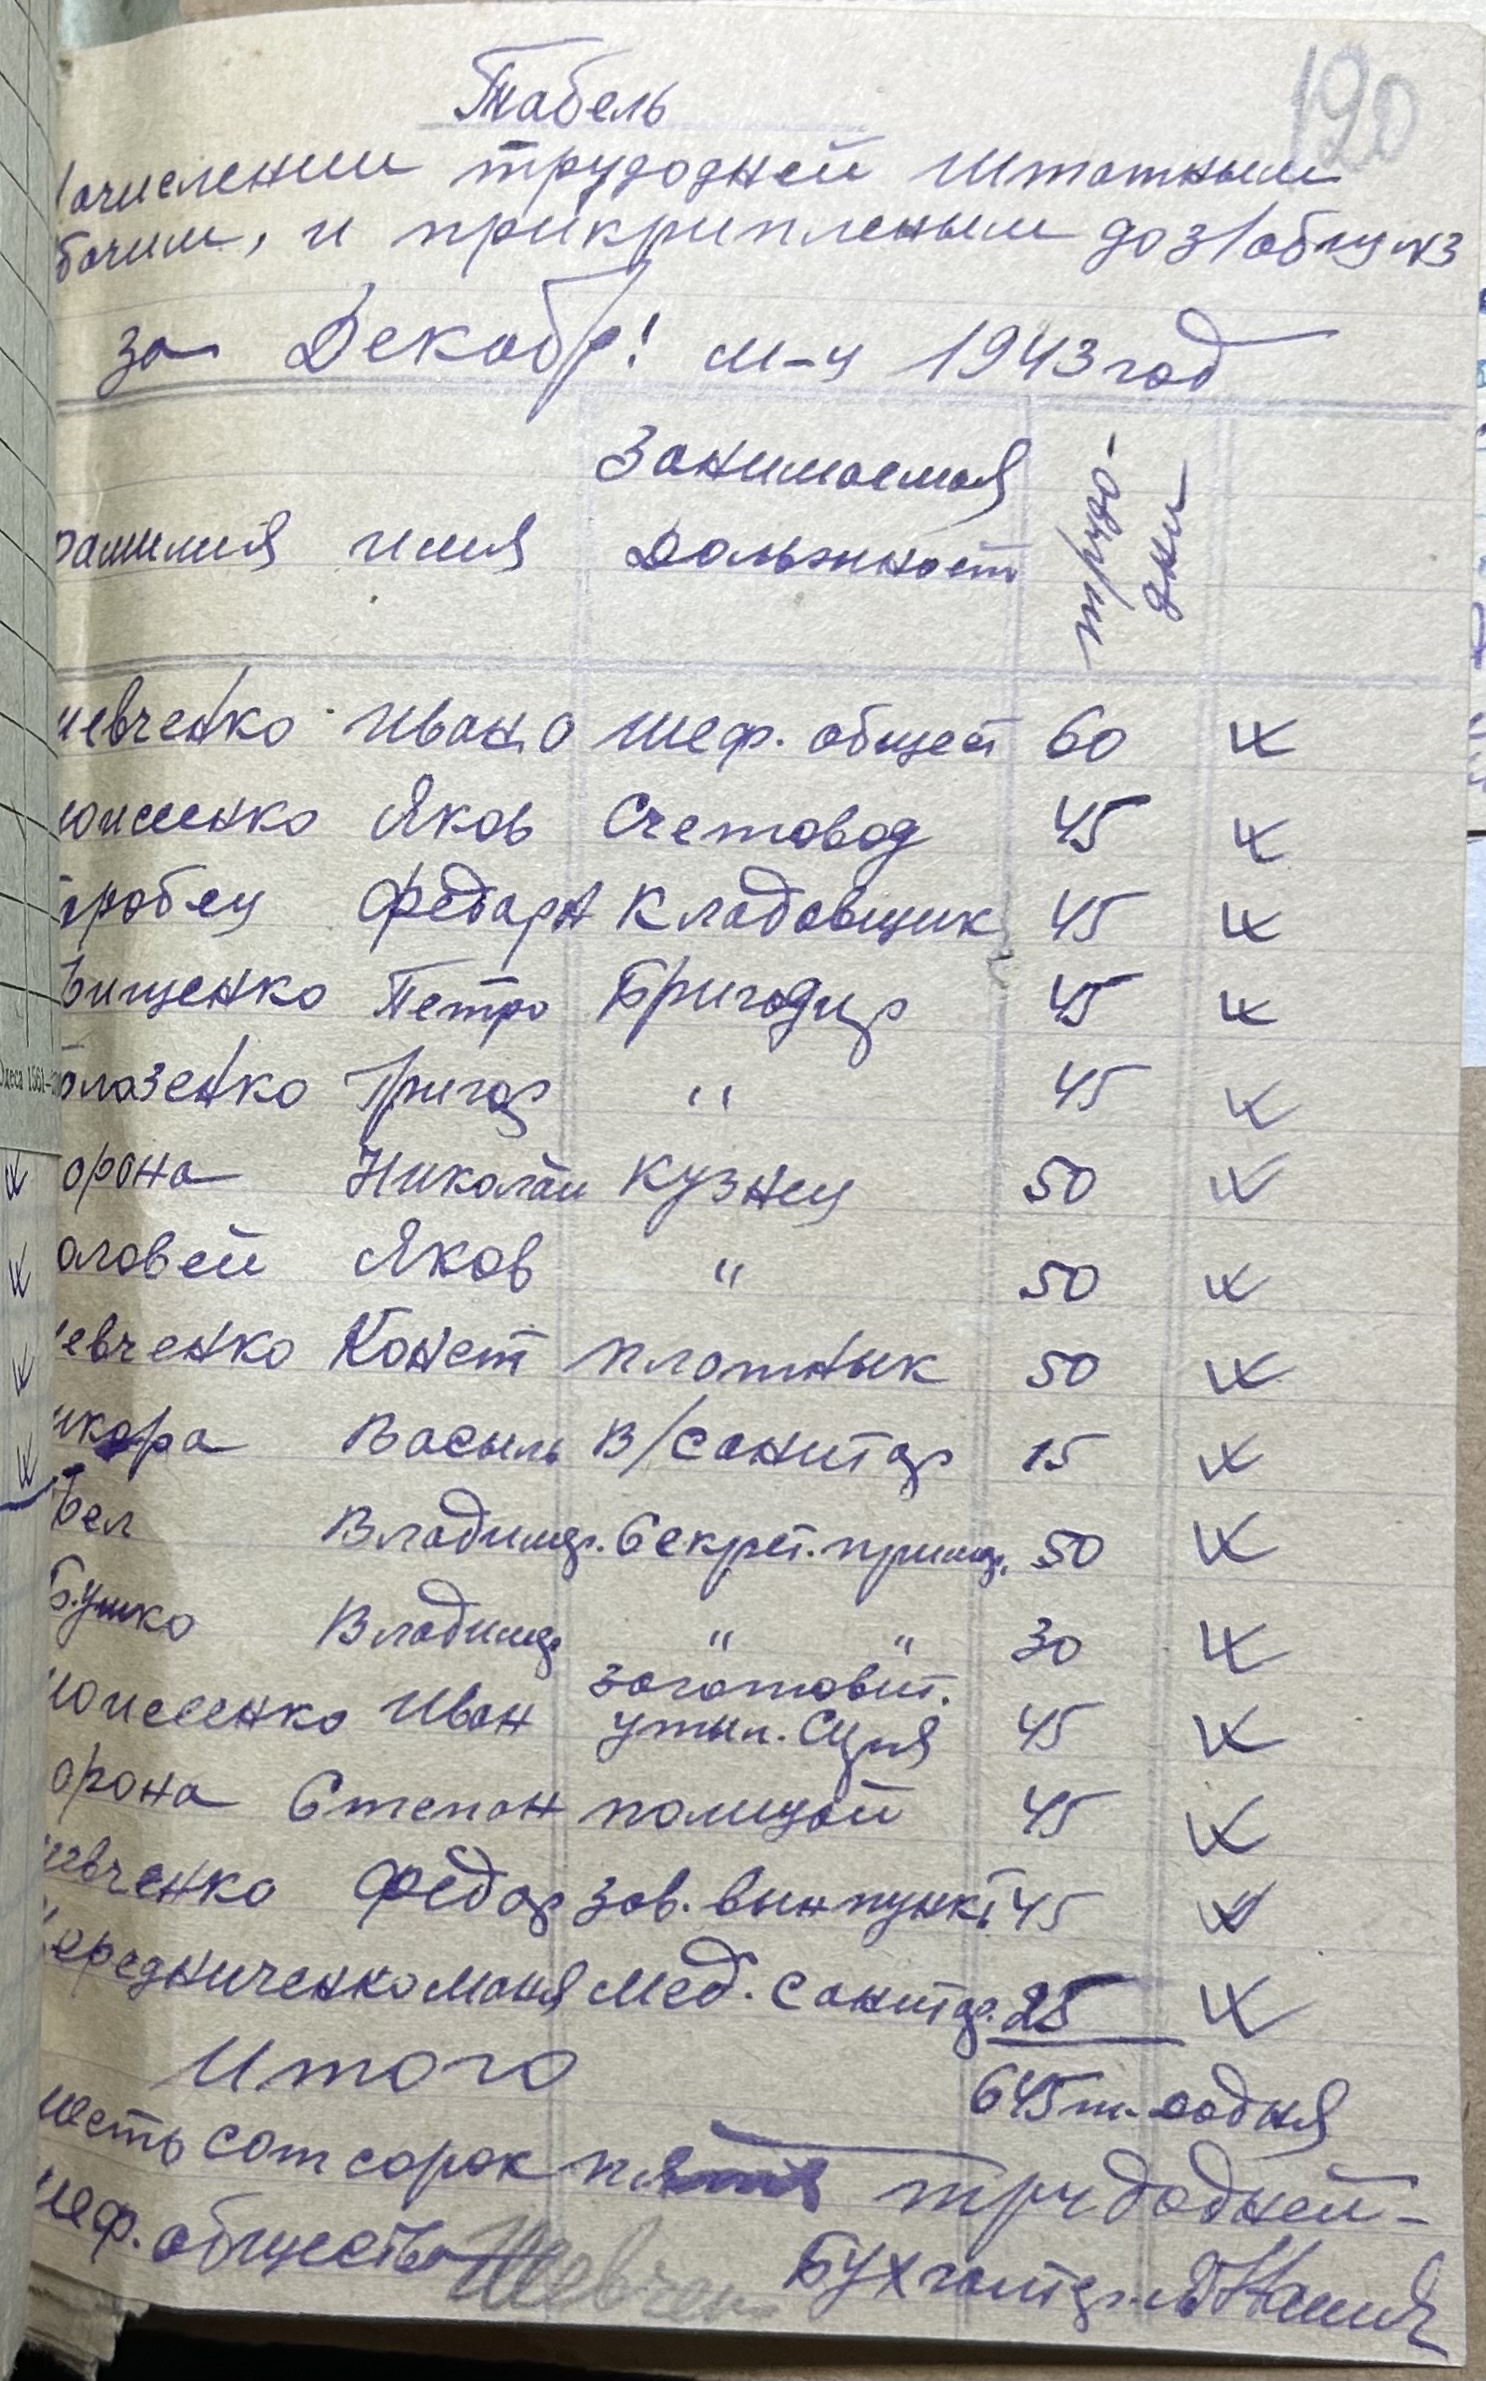 120
Табель
ачислении трудодней штатным
бочим, и прикрипленым до з/общ
за Декабр! м-ц 1943 год
Занимаемая
трудо-
дни
амилия имя Должност
евченко Иван О шеф. общест 60
оисеенко Яков Счетовод 45
робец Федор Кладовщик 45
вищенко Петро Бригадир 45
Одеса 1561-
лазенко Григор " 45
орона Николай Кузнец 50
оловей Яков " 50
евченко Конст плотнык 50
икора Васыль В/санитар 15
Бел Владимир. Секрет. примар. 50
Бушко Владимир " " 30
заготовит.
оисеенко Иван утыл. Сыря 45
орона Степан полицай 45
евченко Федор зав. вынпункт 45
ередниченко Маня мед. санитар. 25
Итого 645 т.-додня
шесть сот сорок пять трудодней-
шеф. общества Шевчен Бухгалтер.